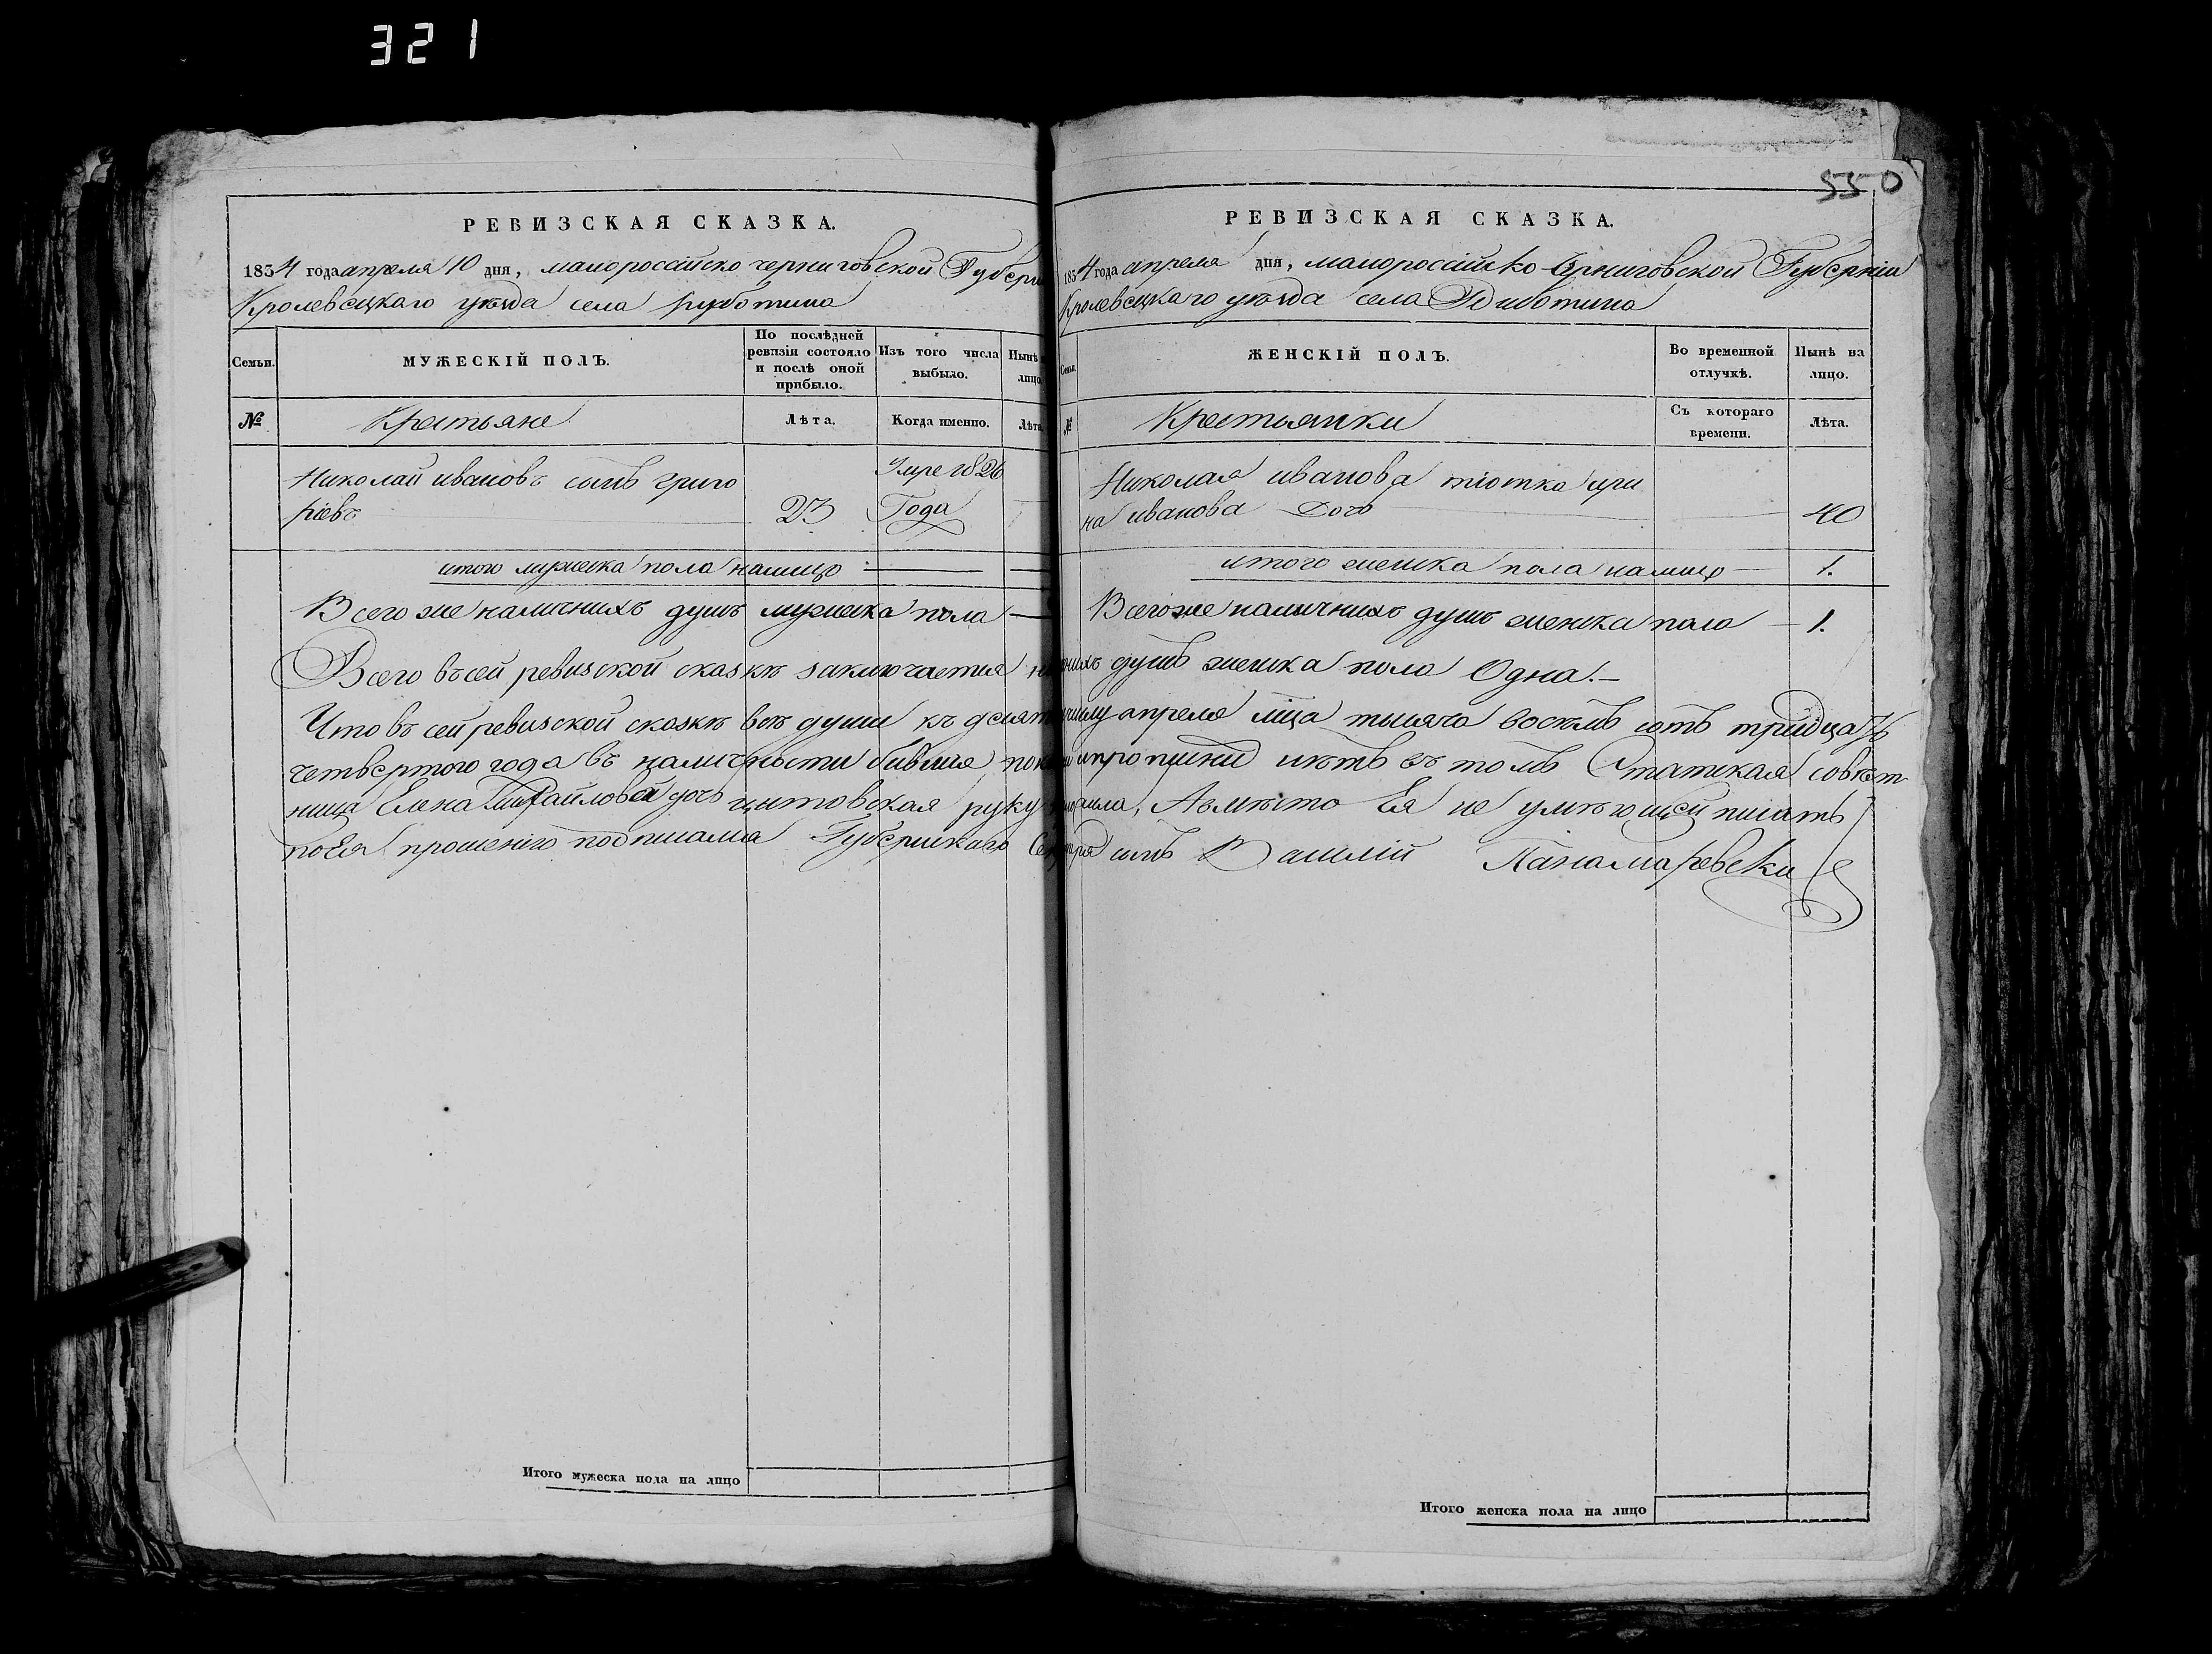 321
550
РЕВИЗСКАЯ СКАЗКА.
1834 года апреля 10 дня, малороссійско черниговской Губерн
Кролевецкаго уѣзда села
Семьи.
МУЖЕСКІЙ ПОЛЪ.
По послѣдней ревизіи состояло и послѣ оной прибыло.
Изъ того числа выбыло.
Нынѣ лицо
№
Крестьяне
Лѣта.
Когда именно.
Лѣта
Николай ивановъ сынъ григо
ріевъ
23
Умре 1826
Года
итого мужеска пола налицо
Всего же наличнихъ душъ мужеска пола
Всего въсей ревизской сказкѣ заключается
Что въ сей ревизской сказкѣ всѣ души къ десят
четвертого года въ наличности
ница Елена Михайлова дочь руку
поЕя прошенію подписалъ Губернскаго
Итого мужеска пола на лицо
РЕВИЗСКАЯ СКАЗКА.
1834 года апреля дня, малороссійско Черниговской Губерніи
Кролевецкаго уѣзда села
Семьи
ЖЕНСКІЙ ПОЛЪ.
Во временной отлучкѣ.
Нынѣ на лицо.
№
Крестьянки
Съ котораго времени.
Лѣта.
Николая иванова тіотка ири
на иванова дочь
40
итого женска пола налицо
1.
Всегоже наличнихъ душъ женска пола
1.
душъ женска пола Одна.
числу апреля мца тысяча восемъ сотъ тридца
нѣтъ въ томъ Статская совѣт
Авмѣсто Ея не умѣющей писать
сынъ Василій Панамаревски
Итого женска пола на лицо